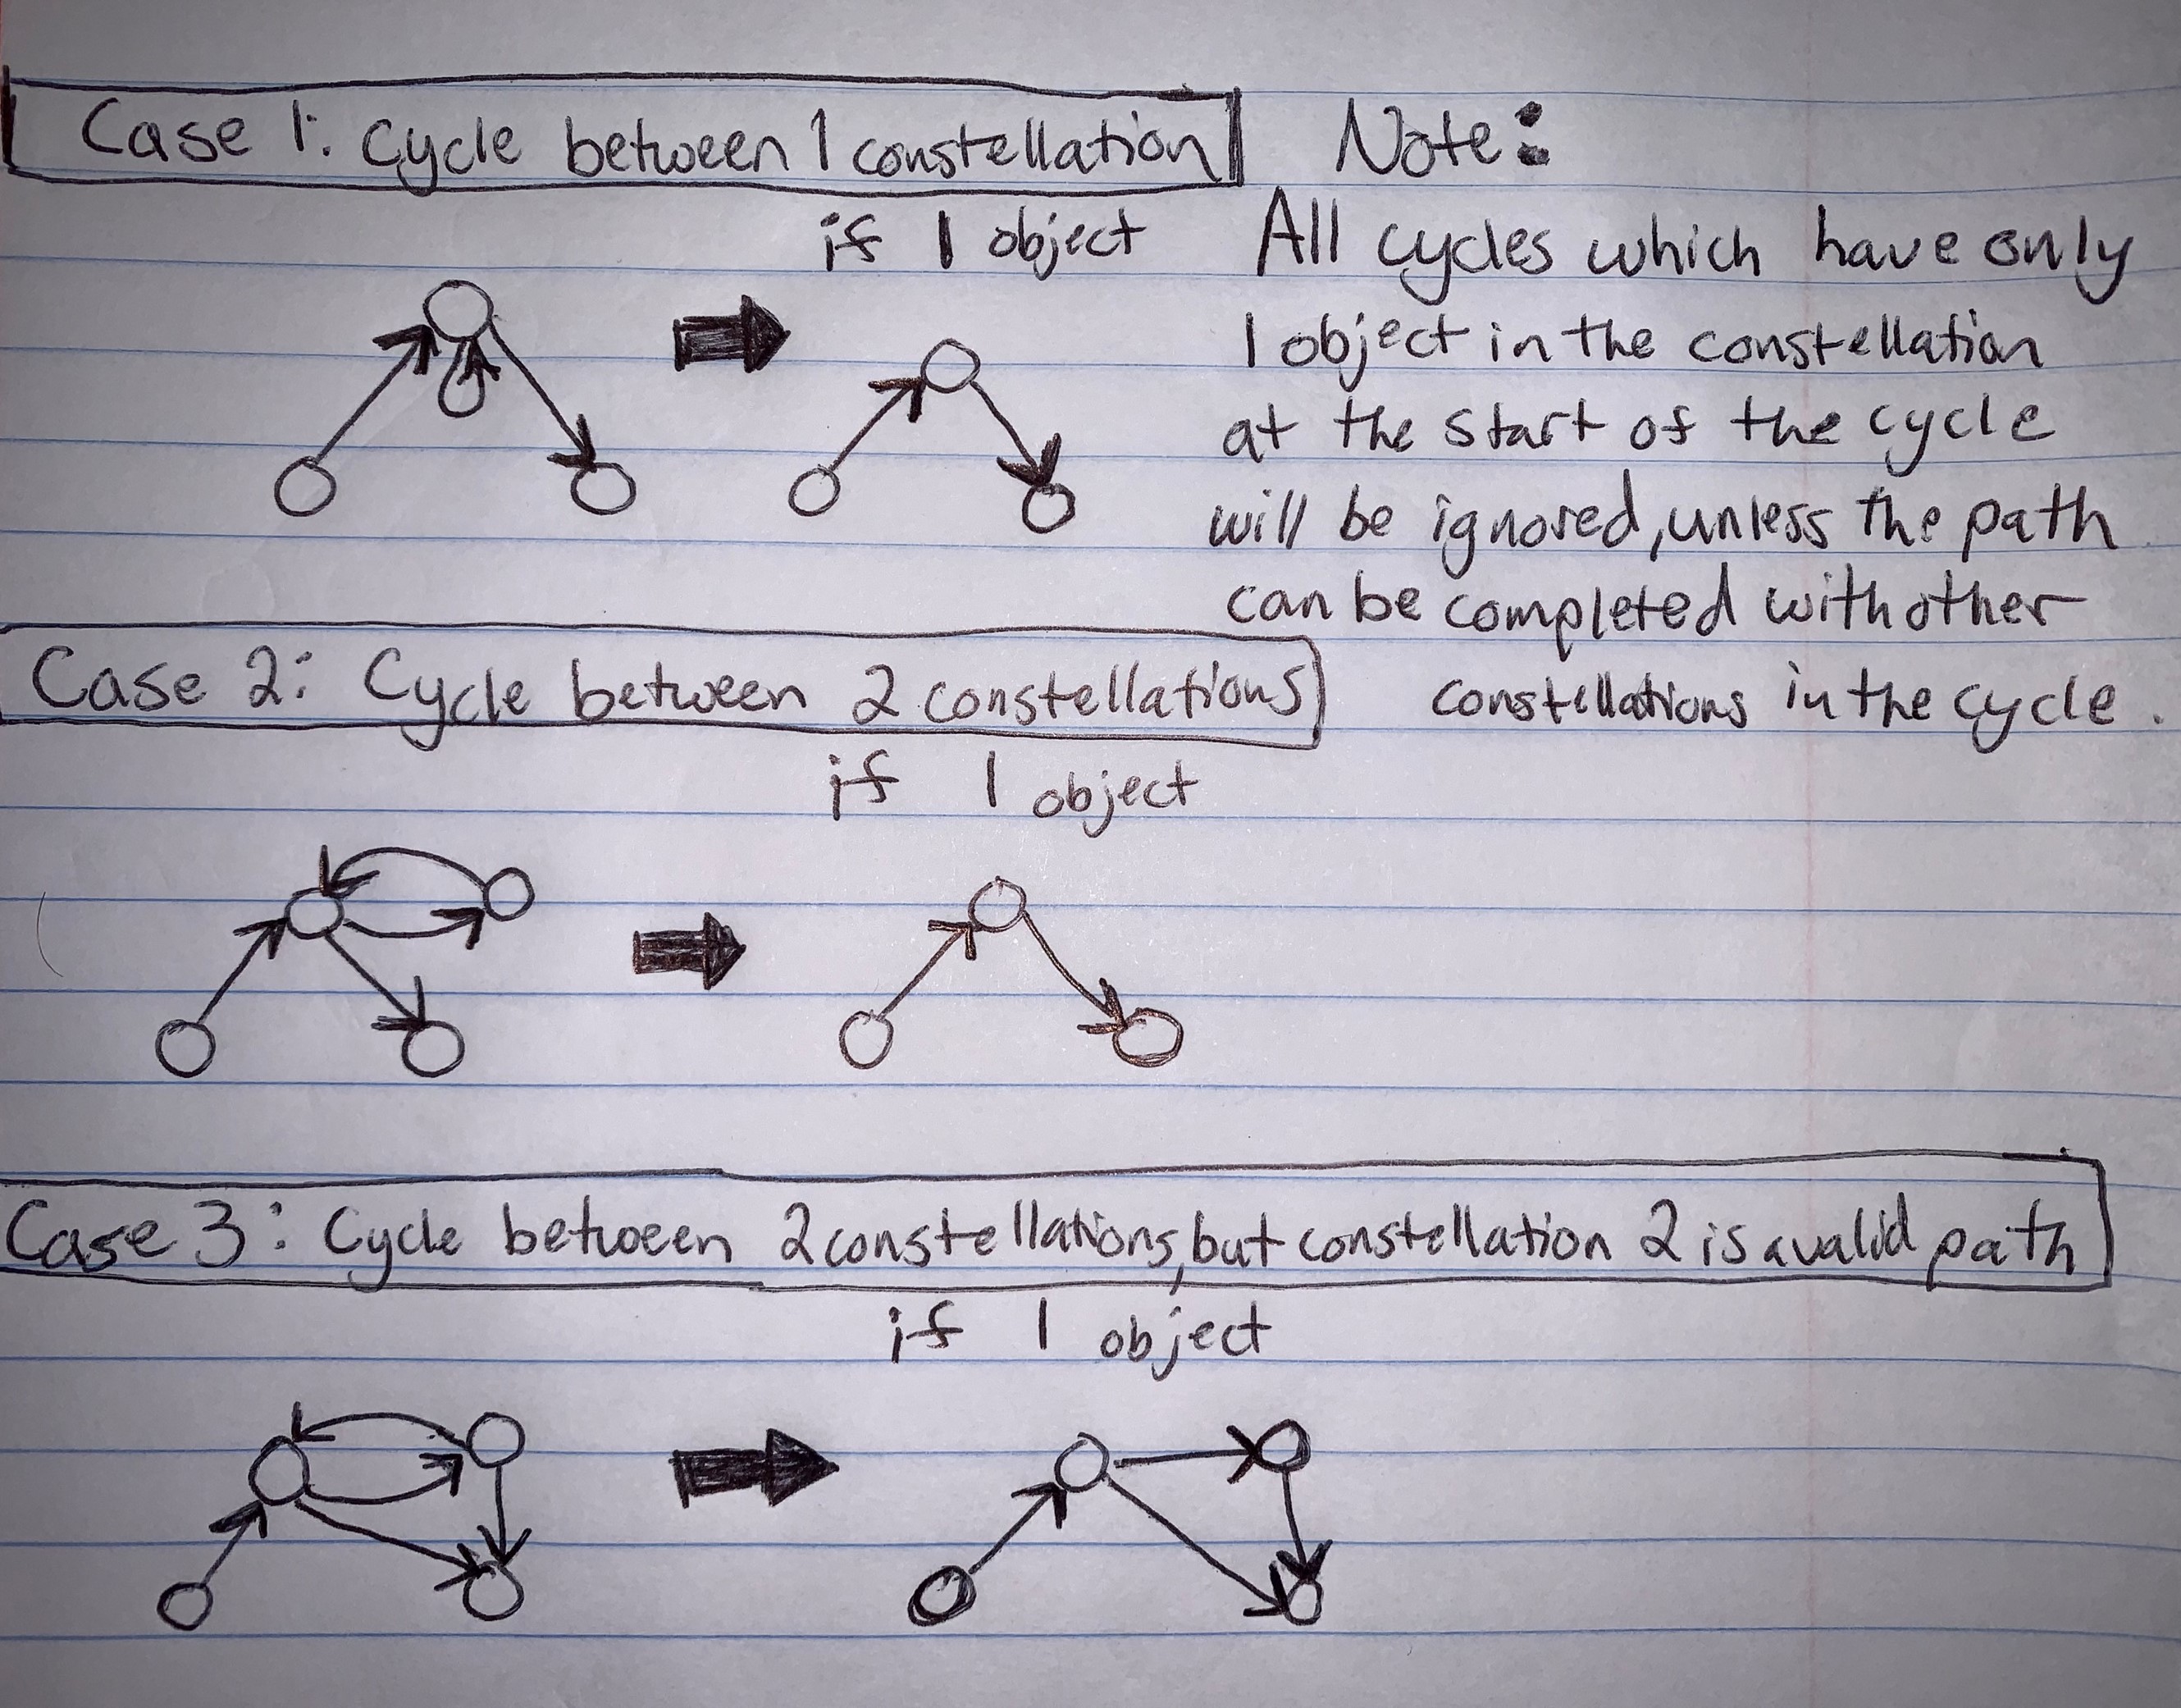 Case 1: Cycle between 1 constellation
if 1 object
Note:
All cycles which have only
1 object in the constellation
at the start of the cycle
will be ignored, unless the path
can be completed with other
constellations in the cycle.
Case 2: Cycle between 2 constellations
if 1 object
Case 3: Cycle between 2 constellations, but constellation 2 is a valid path
if 1 object